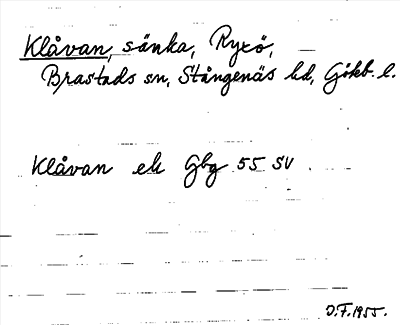 Klåvan, sänka, Ryxö,
Brastads sn, Stångenäs hd, Gbkb. l.
Klåvan ek Gbg 55 SV
O.F. 1955.